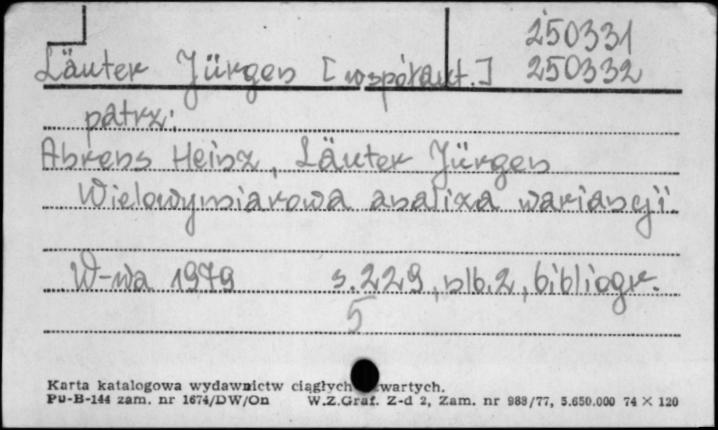 250331
Läuter Jürgen [współaut.] 250332
patrz:
Ahrens Heinz, Läuter Jürgen
Wielowymiarowa analiza wariancji
W-wa 1979 s. 229, nlb. 2, bibliogr.
5
Karta katalogowa wydawnictw ciągłych wartych.
Pu-B-144 zam. nr 1674/DW/On W.Z.Graf. Z-d 2, Zam. nr 988/77, 5.650.000 74 × 120